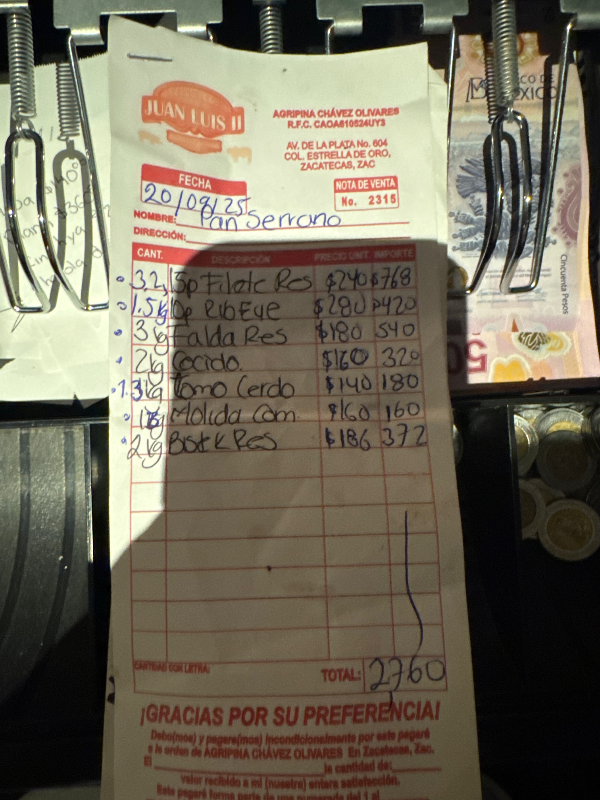 JUAN LUIS II
AGRIPINA CHÁVEZ OLIVARES
R.F.C. CAOA610524UY3
AV. DE LA PLATA No. 604
COL. ESTRELLA DE ORO,
ZACATECAS, ZAC
FECHA
20/09/25
NOTA DE VENTA
No. 2315
NOMBRE: Pan Serrano
DIRECCIÓN:
CANT. DESCRIPCIÓN PRECIO UNIT. IMPORTE
3.2 15p Filete Res $240 $768
1.5kg 10p Rib Eye $280 $420
3kg Falda Res $180 540
2kg Cocido $160 320
1.3kg Lomo Cerdo $140 180
1kg Molida Com $160 160
2kg Bistek Res $186 372
CANTIDAD CON LETRA:
TOTAL: 2760
¡GRACIAS POR SU PREFERENCIA!
Debo(mos) y pagaré(mos) incondicionalmente por este pagaré
a la orden de AGRIPINA CHÁVEZ OLIVARES En Zacatecas, Zac.
El la cantidad de:
valor recibido a mi (nuestra) entera satisfacción.
Este pagaré forma parte de una numerada del 1 al
MÉXICO
Cincuenta Pesos
50